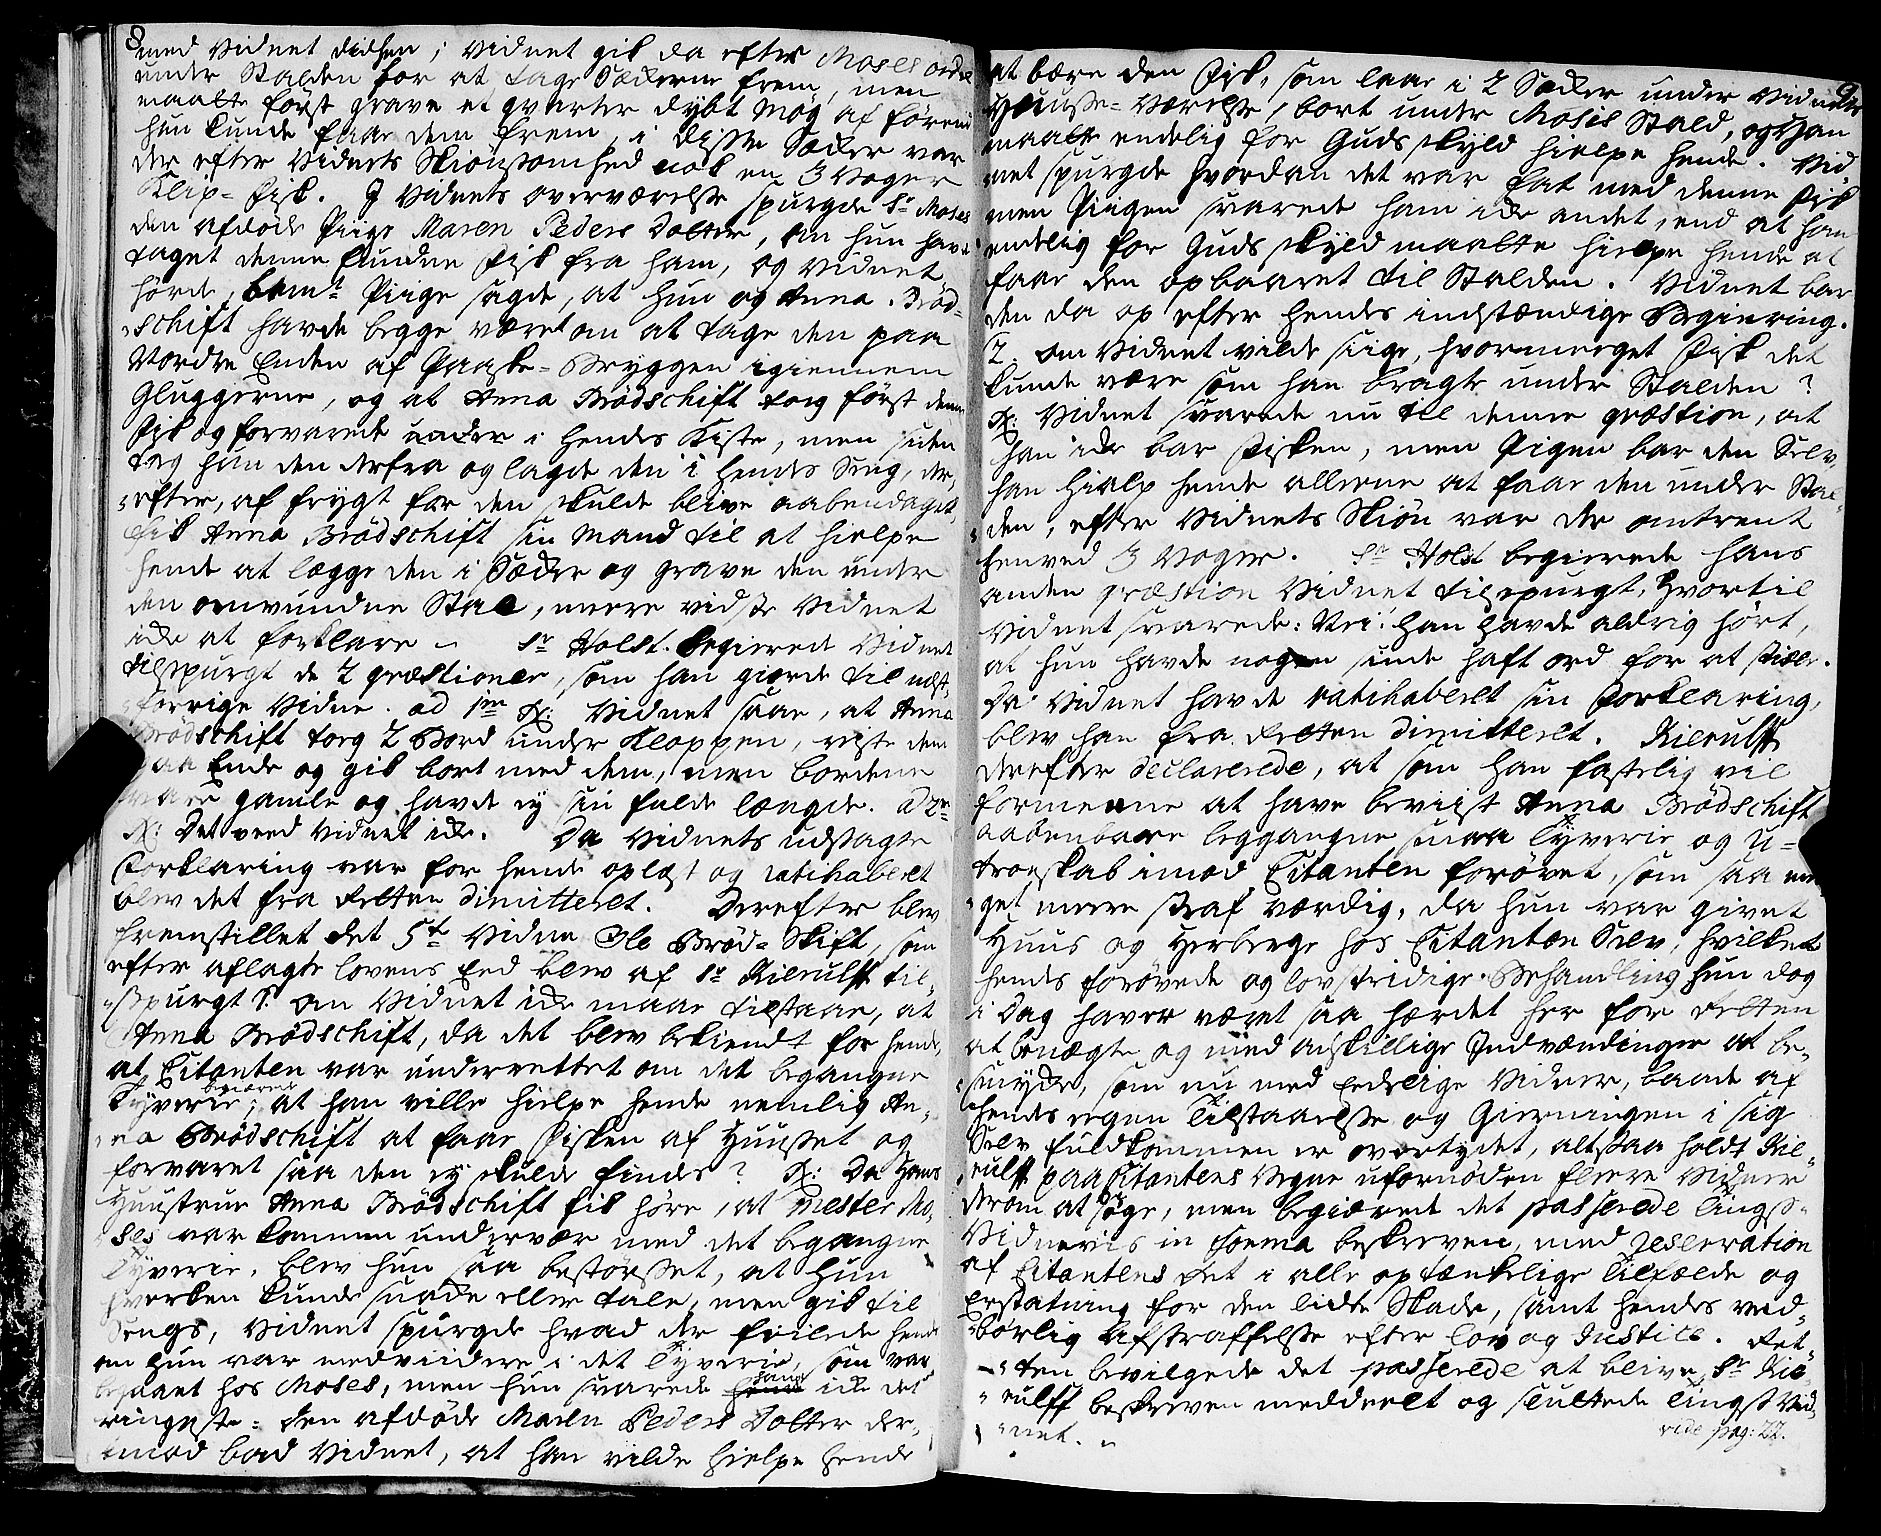 8
med Vidnet didhen; Vidnet gik da efter Moses ordre
under Stalden for at tage Sækkerne frem, men
maatte først grave et qvarter dybt Møg af förend
hun kunde faae dem frem, i disse Sækker var
der efter Vidnets Skiönsomhed nok en 3 Voger
Klip-Fisk. I Vidnets overværelse spurgde Sr. Moses
den afdöde Piige Maren Peders Dotter, om hun havde
taget denne fundne Fisk fra ham, og Vidnet
hörde, bemte. Piige sagde, at hun og Anna Bröd-
schift havde begge været om at tage den paa
Nordre Enden af Paaske-Bryggen igiennem
Gluggerne, og at Anna Brödschift tog först denne
Fisk og forvarede under i hendes Kiste, men siden
tog hun den derfra og lagde den i hendes Seng, der-
efter, af frygt for den skulde blive aabendaget,
fik Anna Brödschift sin Mand til at hielpe
hende at lægge den i Sækker og grave den under
den omvundne Stal, meere vidste Vidnet
ikke at forklare. Sr. Holst begierede Vidnet
tilspurgt de 2 qvæstioner, som han giorde til næst-
forrige Vidne. ad 1mo R: Vidnet saae, at Anna
Brödschift tog 2 Bord under Kloppen, reiste dem
paa Ende og gik bort med dem, men bordene
vare gamle og havde ey sin fulde længde. ad 2de
R: Det veed Vidnet ikke. Da Vidnets udsagte
Forklaring var for hende oplæst og ratihaberet
blev det fra Retten dimitteret. Derefter blev
fremstillet det 5te Vidne Ole Bröd-Skift, som
efter aflagde lovens Eed blev af Sr. Kierulff til-
spurgt 1. om Vidnet ikke maae tilstaae, at
Anna Brödschift, da det blev bekiendt for hende,
at Citanten var underrettet om det begangne
Tyverie, begierede at han ville hielpe hende nemlig An-
na Brödschift at faae Fisken af Huuset og
forvaret saa den ey skulde findes? R: Da Hans
Huustrue Anna Brödschift fik höre, at Mester Mo-
ses var kommen undervær med det begangne
Tyverie, blev hun saa bestörtset, at hun
hverken kunde snakke eller tale, men gik til
Sengs, Vidnet spurgde hvad der feilede hende
om hun var medviidere i det Tyverie, som var
begaaet hos Moses, men hun svarede ham ikke det
ringeste: den afdöde Maren Peders Dotter der-
imod bad Vidnet, at han vilde hielpe hende
9
at bære den Fisk, som laae i 2 Sækker under Vidnets
Huuse-Værelse, bort under Moses Stald, og Han
maatte endelig for Guds skyld hielpe hende. Vid-
net spurgde hvordan det var fat med denne Fisk
men Piigen svarede ham ikke andet, end at han
endelig for Guds skyld maatte hielpe hende at
faae den opbaaret til Stalden. Vidnet bar
den da op efter hendes indstændige Begiering.
2. om Vidnet vilde siige, hvormeeget Fisk det
kunde være som han bragte under Stalden?
R: Vidnet svarede nu til denne qvæstion, at
han ikke bar Fisken, men Pigen bar den Selv,
han hialp hende alleene at faae den under Stal-
den, efter Vidnets Skiön var der omtrent
henved 3 Voger. Sr. Holst begierede hans
anden qvæstion Vidnet tilspurgt, hvortil
Vidnet svarede: Nei! han havde aldrig hört,
at hun havde nogen sinde haft ord for at stiæle.
Da Vidnet havde ratihaberet sin Forklaring,
blev han fra Retten dimitteret. Kierulff
derefter declarerede, at som han fastelig vil
formeene at have beviist Anna Brödschift
aabenbare beggangne smaa Tyverie og U-
troeskab imod Citanten forövet, som saa me-
get meere straf værdig, da hun var givet
Huus og Herberge hos Citanten Selv, hvilket
hendes forövede og lovstridige Behandling hun dog
i Dag haver været saa hærdet her for Retten
at benægte og med adskillige Indvændinger at be-
smykke, som nu med Eedelige Vidner, baade af
hendes egen Tilstaaelse og Gierningen i sig
Selv fuldkommen er overtydet, altsaa holdt Kie-
rulff paa Citantens Vegne ufornöden fleere Vidner
derom at före, men begierede det passerede Tings-
Vidneviis in forma beskreven, med reservation
af Citantens Ret i alle optænkelige Tilfælde og
Erstatning for den lidte Skade, samt hendes ved-
börlig Afstraffelse efter lov og Justice. Ret-
ten bevilgede det passerede at blive Sr. Kie-
rulff beskreven meddeelt og sluttede Tings Vid-
net.
vide pag: 22.